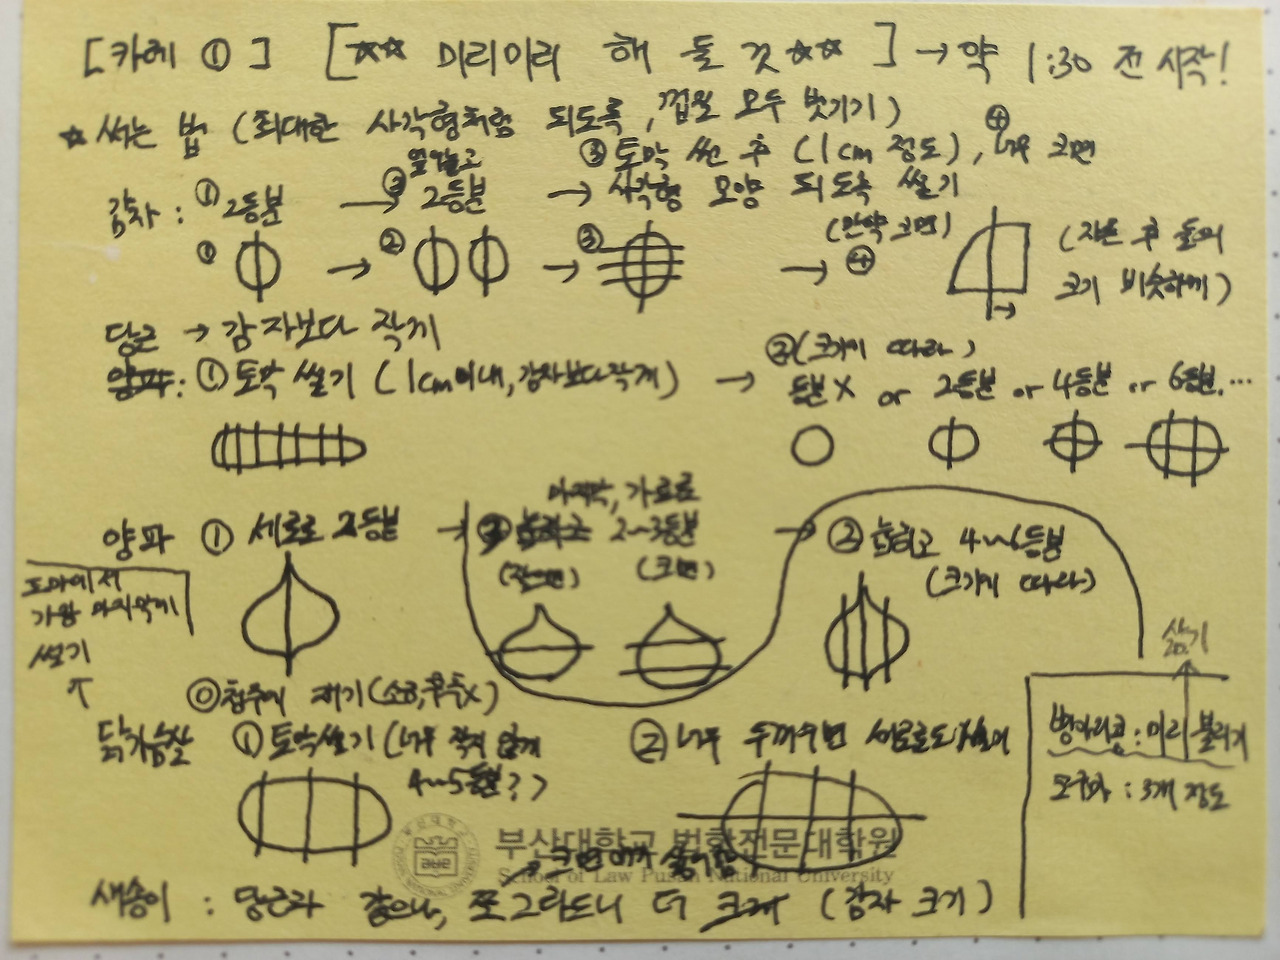 [카레 ①] [☆☆ 미리미리 해 둘 것 ☆☆] → 약 1:30 전 시작!
☆ 써는 법 (최대한 사각형처럼 되도록, 껍질 모두 벗기기)
감자 : ① 2등분 → ② 옆알고 2등분 → ③ 토막 썬 후 (1cm 정도), ④ 너무 크면
사각형 모양 되도록 썰기
① → ② → ③ → (만약 크면) ④ (자른 후 둘의
크기 비슷하게)
당근 → 감자보다 작게
양파 : ① 토막 썰기 (1cm 이내, 감자보다 작게) → ② (크기에 따라)
등분 X or 2등분 or 4등분 or 6등분, ...
양파 ① 세로로 2등분 → ③ 눕히고 2~3등분 → ② 눕히고 4~6등분
마지막, 가로로
(작으면) (크면) (크기에 따라)
도마에서
가장 마지막에
썰기
↑
⓪ 청주에 재기 (소금, 후추 X)
닭가슴살 ① 토막썰기 (너무 작지 않게
4~5등분?)
② 너무 두꺼우면 세로로도
병아리콩 : 미리 불리기
삶기
20.
: 3개 정도
부산대학교 법학전문대학원
School of Law Pusan National University
→ 크면
새송이 : 당근과 같으나, 쪼그라드니 더 크게 (감자 크기)